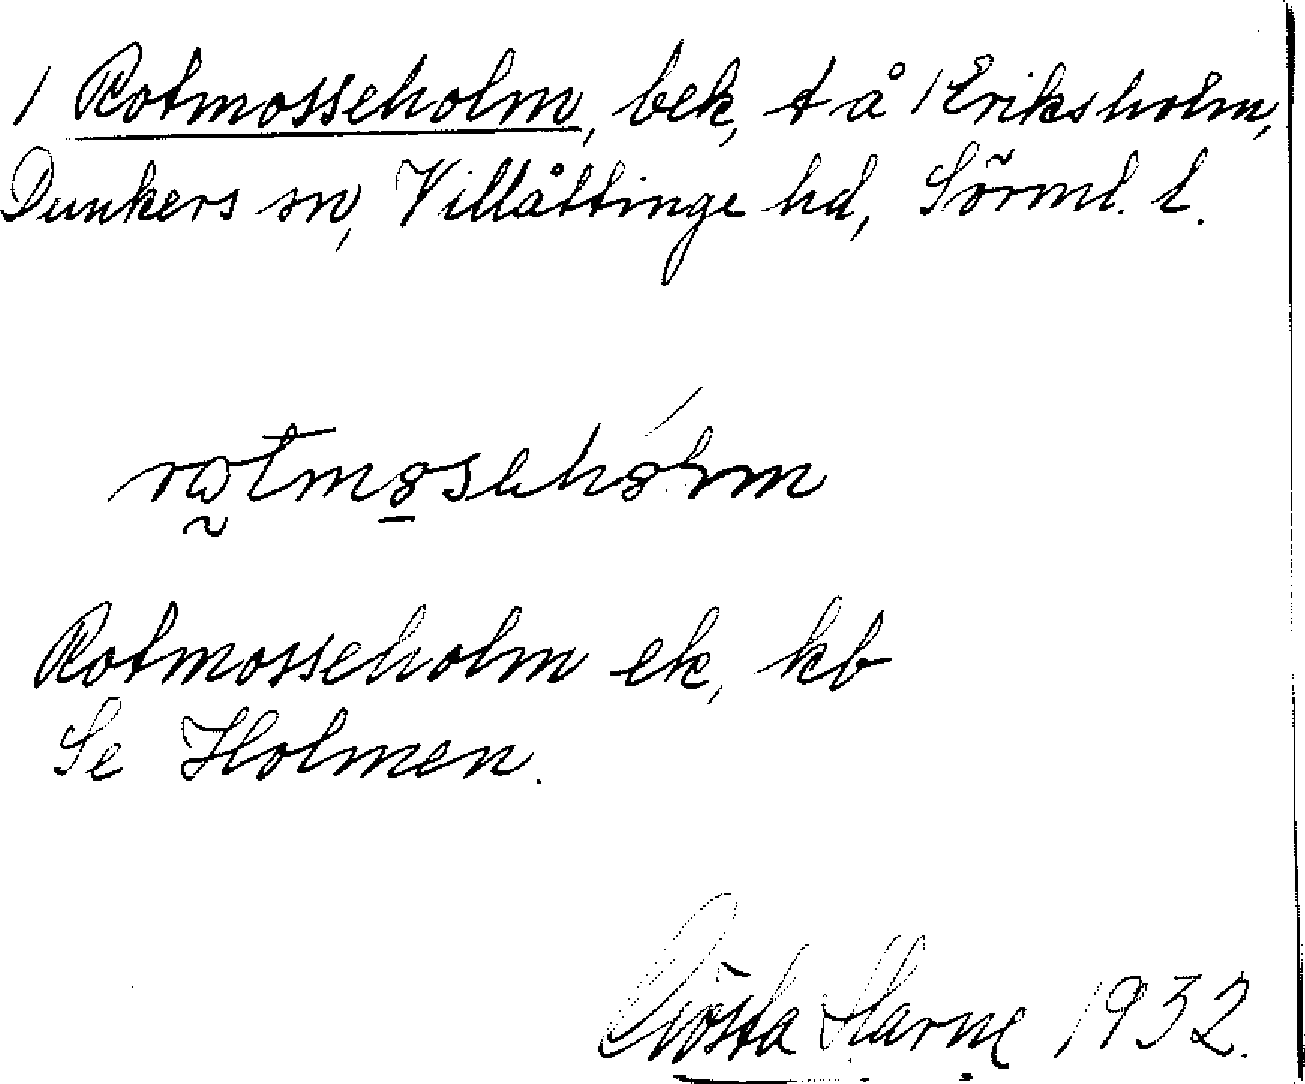 / Rotmosseholm, bek, t å / Eriksholm,
Dunkers sn, Villåttinge hd, Sörml. l.
Rotmosseholm ek, kb
Se Holmen.
Gösta 1932.